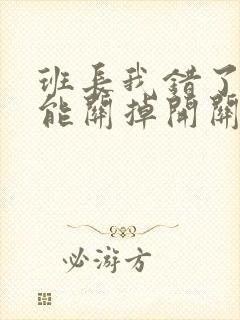 班长我错了
能关掉开关
必游方